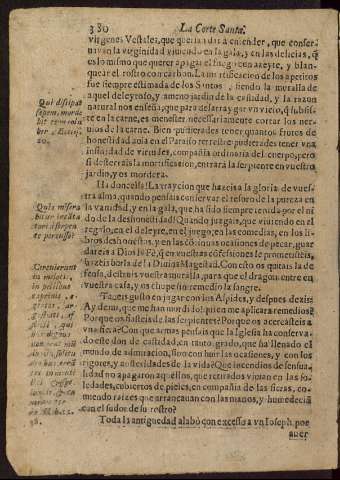 380 La Corte Santa.
virgenes Vestales, que querian dar à entender, que conser-
uauan la virginidad viuiendo en la gala, y en las delicias, q̃
es lo mismo que querer apagar el fuego con azeyte, y blan-
quear el rostro con carbon. La mortificacion de los apetitos
fue siempre estimada de los Santos, siendo la muralla de
aquel deleytoso, y ameno jardin de la castidad, y la razon
natural nos enseña, que para desarraygar vn vicio, q̃ subsis-
te en la carne, es menester necessariamente cortar los ner-
uios de la carne. Bien pudierades tener quantos frutos de
honestidad auia en el Paraiso terrestre: pudierades tener vna
infinidad de virtudes, compañia ordinaria del cuerpo, pero
si desterrais la mortificacion, entrará la serpiente en vuestro
jardin, y os mordera.
Ha donzellas! La traycion que hazeis a la gloria de vues-
tra alma, quando pensais conseruar el tesoro de la pureza en
la vanidad, y en la gala, que ha sido siempre tenida por el ni
do de la deshonestidad! Quando juzgais, que viuiendo en el
regalo, en el deleyte, en el juego, en las comedias, en los li-
bros deshonestos, y en las continuas ocasiones de pecar, guar
dareis a Dios la Fè, q̃ en vuestras confesiones le prometisteis,
hazeis burla de la Diuina Magestad. Con esto os quitais la de
fensa, destruis vuestra muralla, para que el dragon entre en
vuestra casa, y os chupe sin remedio la sangre.
Teneis gusto en jugar con los Aspides, y despues dezis:
Ay de mi, que me han mordido! quien me aplicara remedios?
Porque os fiasteis de las serpientes? Porque os acercasteis a
Con que armas pensais que la Iglesia ha conserua-
do este don de castidad, en tanto grado, que ha llenado el
mundo de admiracion, sino con huir las ocasiones, y con los
rigores, y austeridades de la vida? Que incendios de sensua-
lidad no apagaron aquellos, que retirados viuian en las so-
ledades, cubiertos de pieles, en compañia de las fieras, co-
miendo raizes que arrancauan con las manos, y humedecia
can el sudor de su rostro?
Toda la antiguedad alabò con excesso a vn Ioseph, por
auer
Qui dissipat
sepem, morde
bit eum colu
ber. Eccles.
10.
Quis misere
bitur incãta
tori à serpen
te percusso?
Circuierunt
in melotis,
in pellibus
caprinis,
egentes, an-
gustiati, af-
flicti, qui
bus dignus
non erat mũ
dus, in solitu
dinibus erran
tes in monti
bus
Hebr. 11.
38.